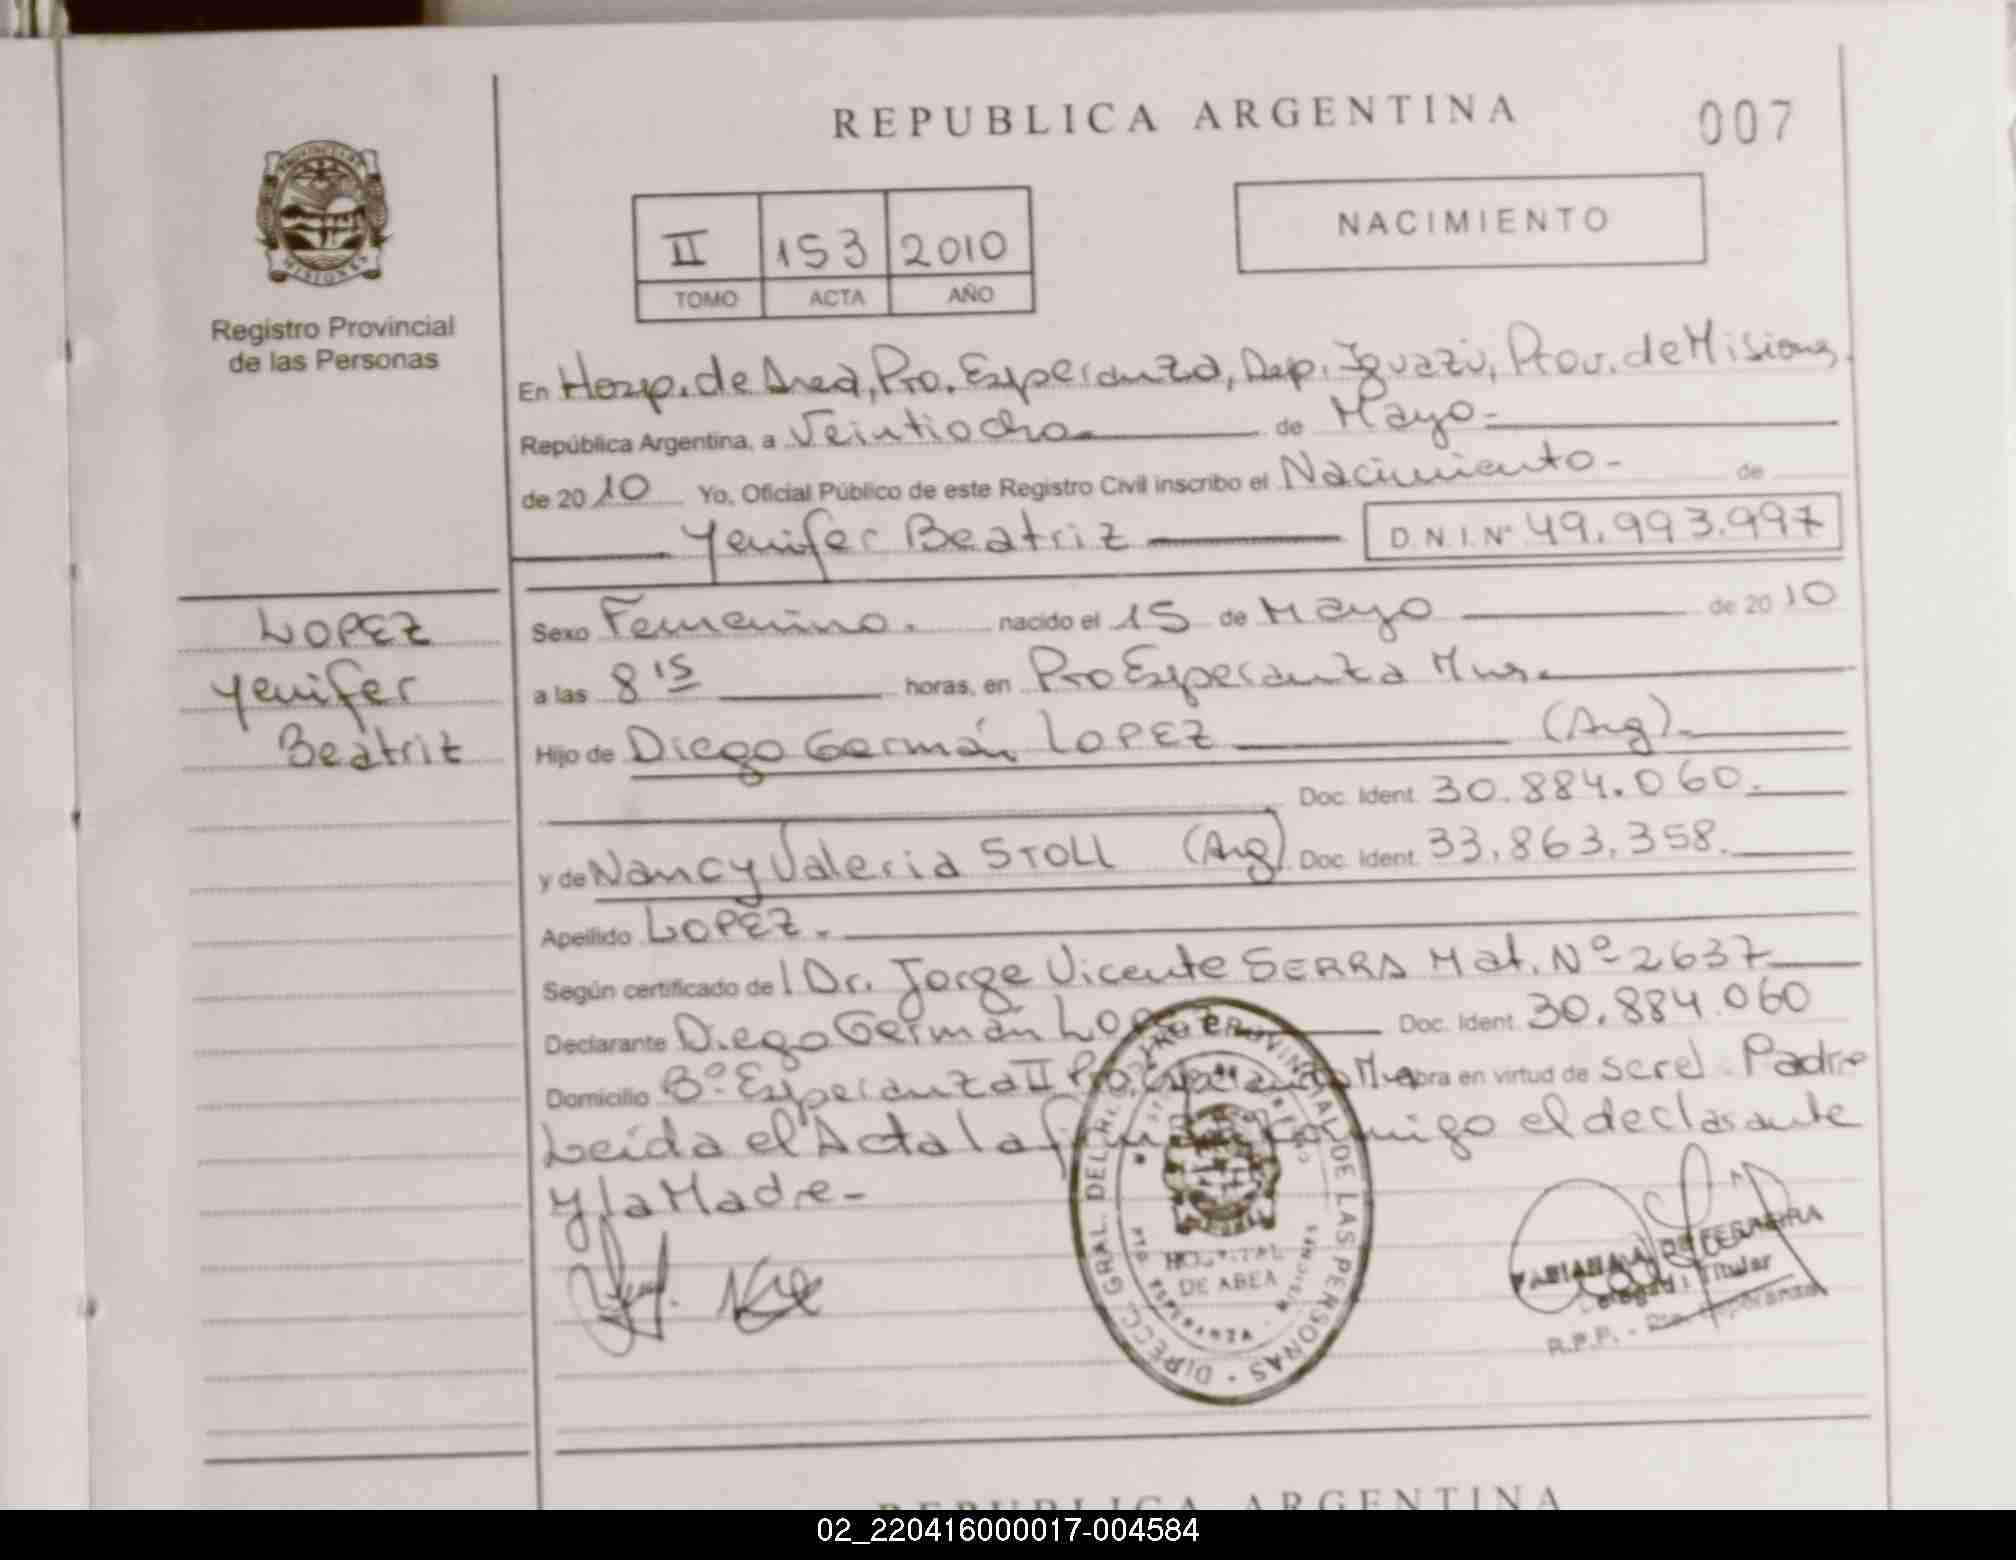 REPUBLICA ARGENTINA
007
PROVINCIA DE
MISIONES
Registro Provincial
de las Personas
II 153 2010
TOMO ACTA AÑO
NACIMIENTO
En Hosp. de Area, Pto. Esperanza, Dep. Iguazú, Prov. de Misiones,
República Argentina, a Veintiocho de Mayo
de 2010 Yo, Oficial Público de este Registro Civil inscribo el Nacimiento - de
Yenifer Beatriz D.N.I.Nº 49.993.997
LOPEZ
Yenifer
Beatriz
Sexo Femenino. nacido el 15 de Mayo de 2010
a las 8 15 horas, en Pto Esperanza Mnes.
Hijo de Diego Germán LOPEZ (Arg).
Doc. Ident. 30.884.060.
y de Nancy Valeria STOLL (Arg) Doc. Ident. 33.863.358.
Apellido LOPEZ.
Según certificado del Dr. Jorge Vicente SERRA Mat. Nº 2637
Declarante Diego Germán Lopez Doc. Ident. 30.884.060
Domicilio Bº Esperanza II Pto. Esperanza Mnes obra en virtud de ser el Padre
Leída el Acta la firman conmigo el declarante
y la Madre-
DIRECC. GRAL. DEL REGISTRO PROVINCIAL DE LAS PERSONAS
HOSPITAL
DE AREA
PTO ESPERANZA - MISIONES
Delegada Titular
R.P.P. - Pto. Esperanza
REPUBLICA ARGENTINA
02_220416000017-004584